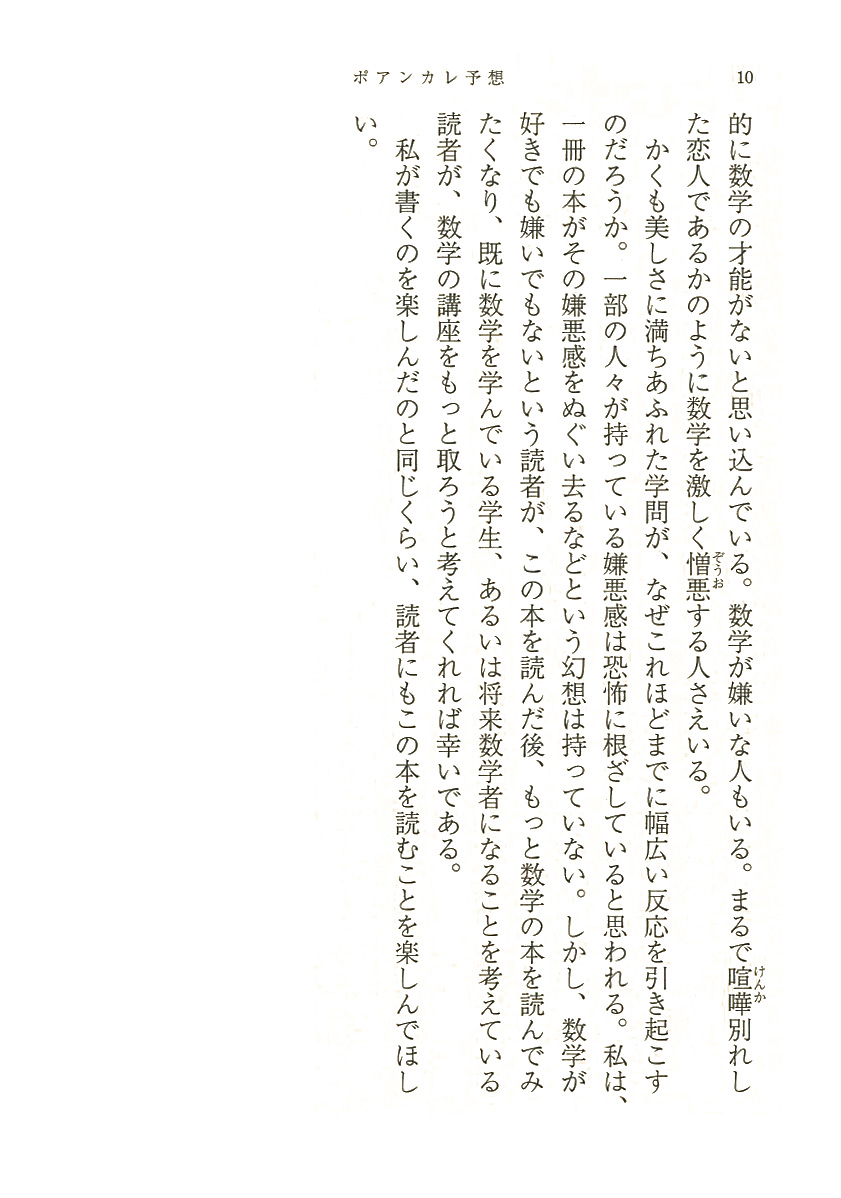 ポアンカレ予想
10
的に数学の才能がないと思い込んでいる。数学が嫌いな人もいる。まるで喧嘩別れし
けんか
た恋人であるかのように数学を激しく憎悪する人さえいる。
ぞうお
かくも美しさに満ちあふれた学問が、なぜこれほどまでに幅広い反応を引き起こす
のだろうか。一部の人々が持っている嫌悪感は恐怖に根ざしていると思われる。私は、
一冊の本がその嫌悪感をぬぐい去るなどという幻想は持っていない。しかし、数学が
好きでも嫌いでもないという読者が、この本を読んだ後、もっと数学の本を読んでみ
たくなり、既に数学を学んでいる学生、あるいは将来数学者になることを考えている
読者が、数学の講座をもっと取ろうと考えてくれれば幸いである。
私が書くのを楽しんだのと同じくらい、読者にもこの本を読むことを楽しんでほし
い。